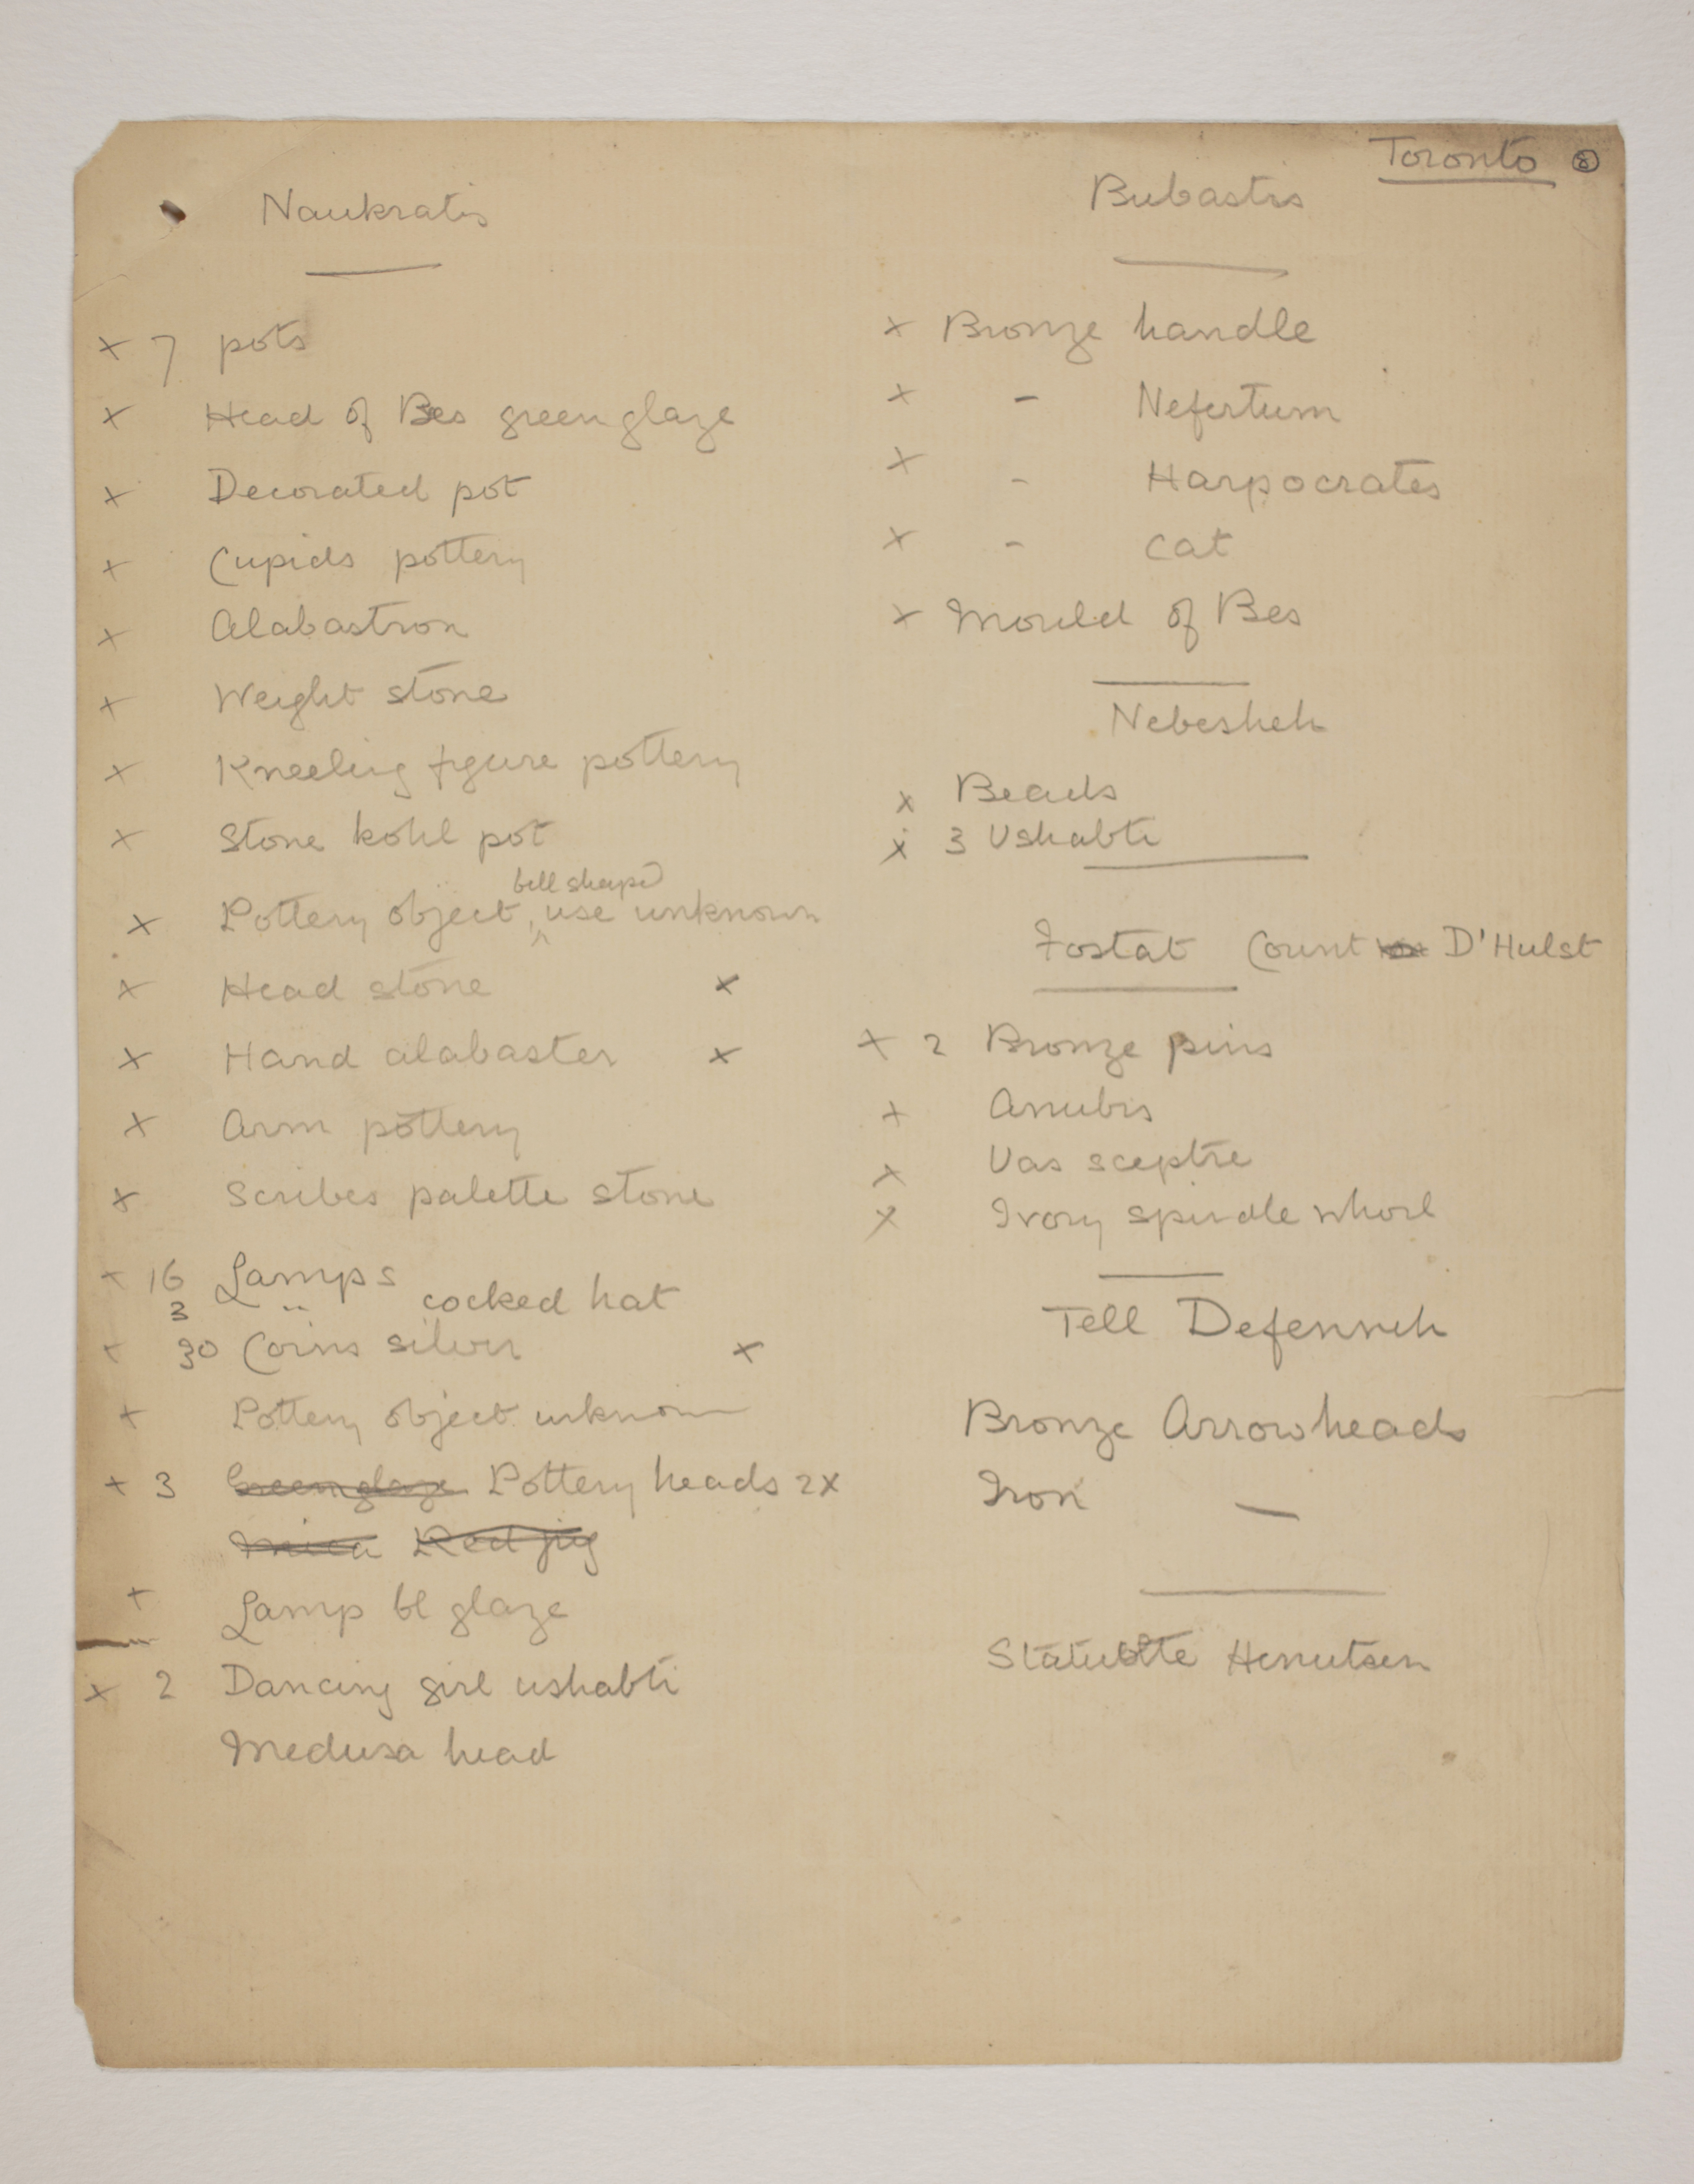 Toronto 8
Naukratis
x 7 pots
x Head of Bes green glaze
x Decorated pot
x Cupids pottery
x Alabastron
x Weight stone
x Kneeling figure pottery
x Stone kohl pot
bell shaped
x Pottery object, ^ use unknown
x Head stone x
x Hand alabaster x
x Arm pottery
x Scribes palette stone
x 16 Lamps
3 " cocked hat
x 30 Coins silver x
x Pottery object unknown
x 3 Green glaze Pottery heads 2x
Red jug
x Lamp bl glaze
x 2 Dancing girl ushabti
Medusa head
Bubastis
x Bronze handle
x - Nefertum
x - Harpocrates
x - cat
x Mould of Bes
Nebesheh
x Beads
x 3 Ushabti
Fostat Count D'Hulst
x 2 Bronze pins
x Anubis
x Uas sceptre
x Ivory spindle whorl
Tell Defenneh
Bronze Arrowheads
Iron —
Statuette Henutsen